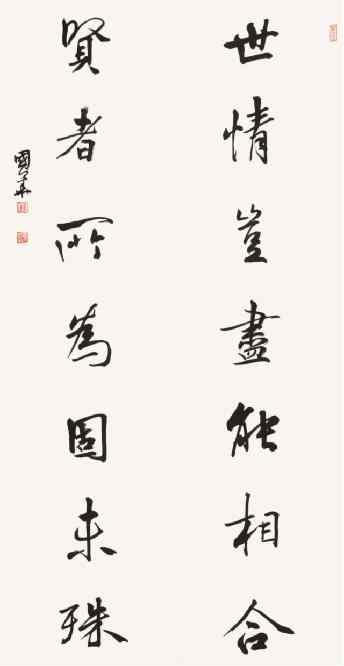 世情豈盡能相合
賢者所為固未殊
國華